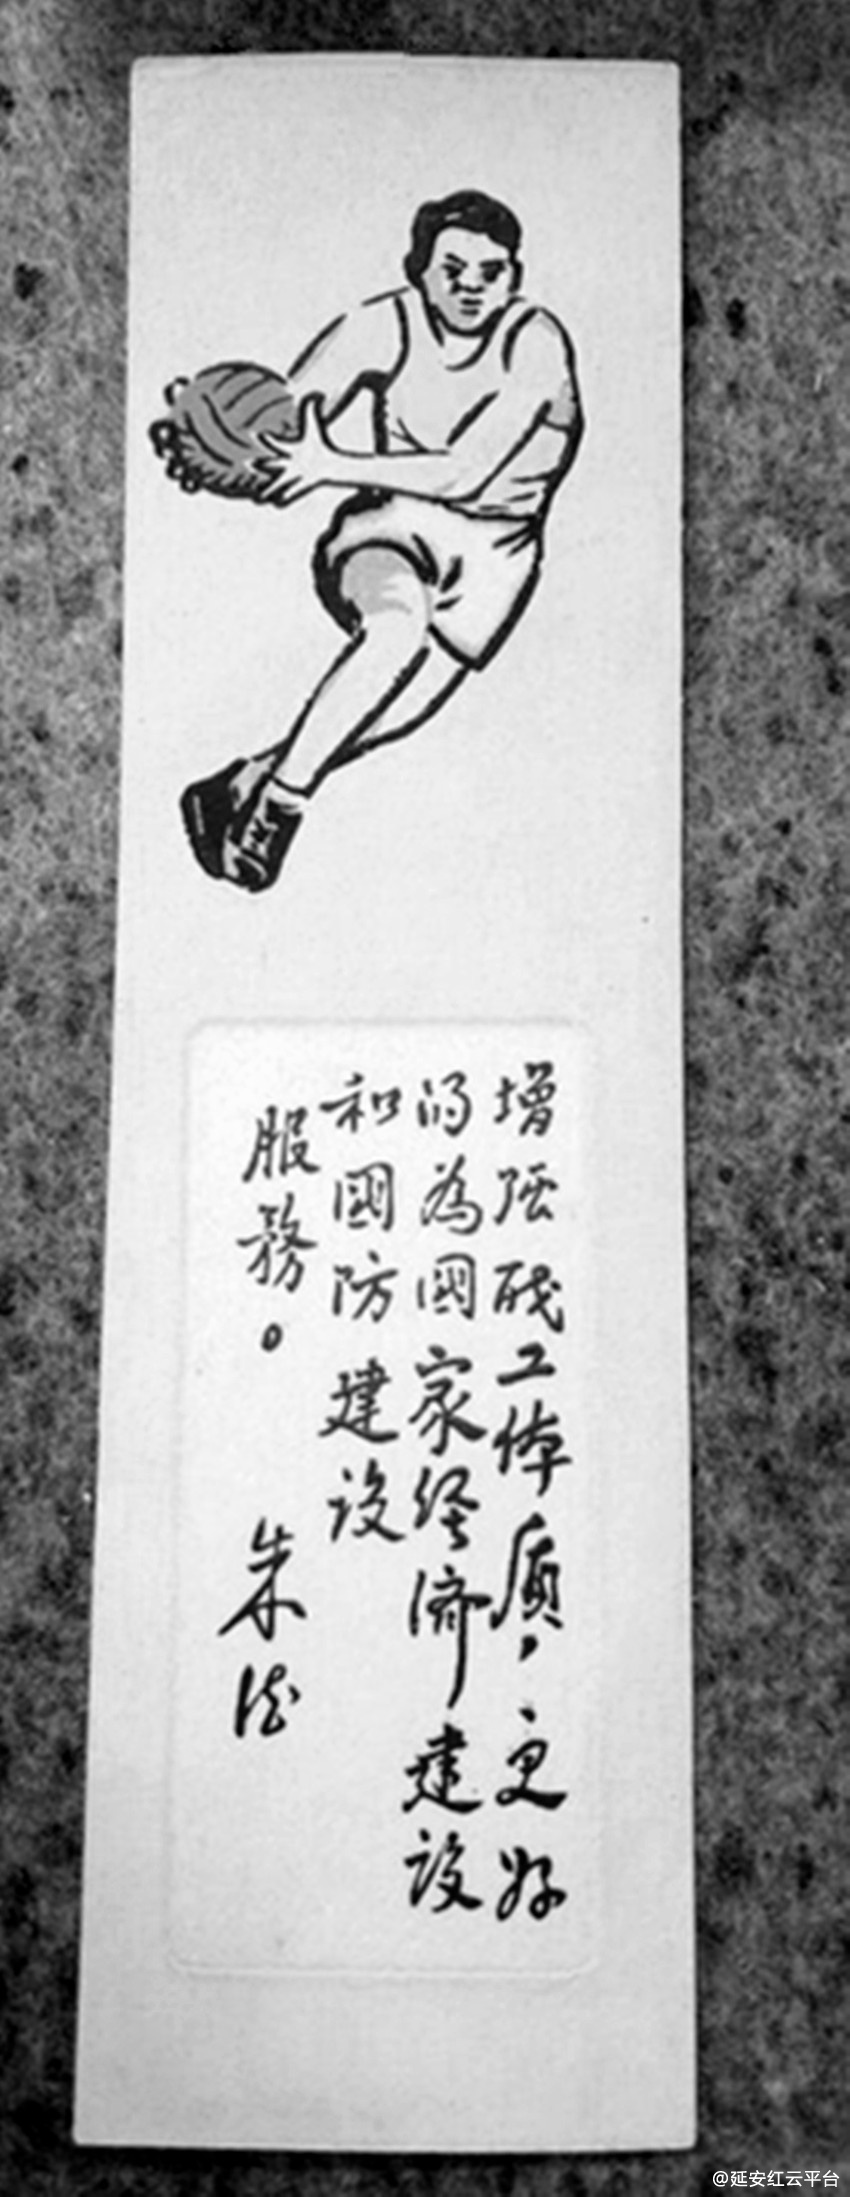 增强职工体质，更好
的为國家经济建设
和國防建设
服務。
朱德
@延安红云平台